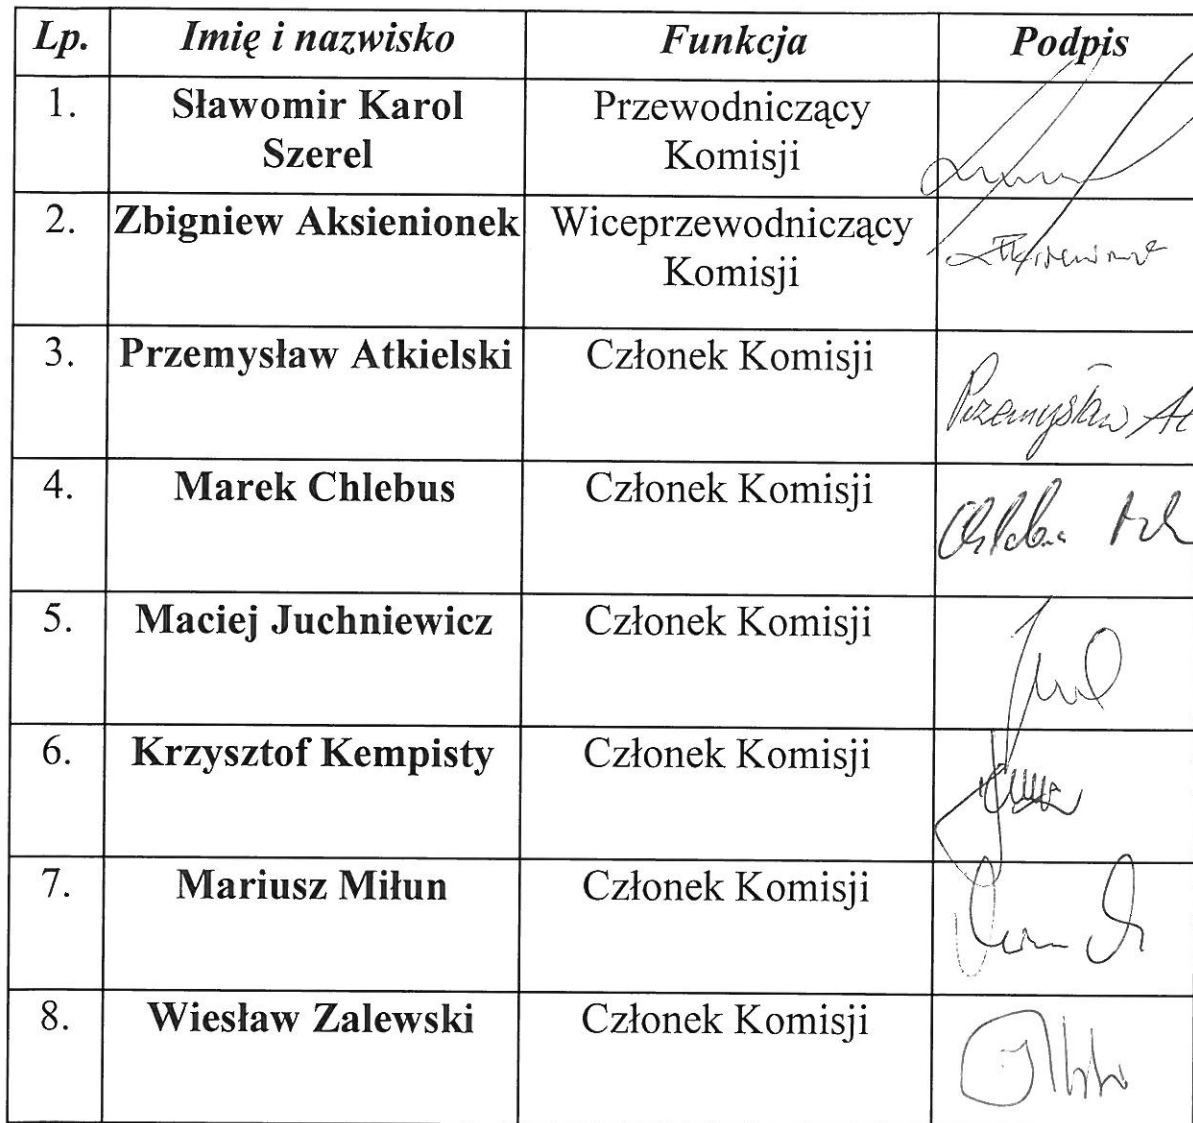 Lp. Imię i nazwisko Funkcja Podpis
1. Sławomir Karol Przewodniczący
Szerel Komisji
2. Zbigniew Aksienionek Wiceprzewodniczący
Komisji
3. Przemysław Atkielski Członek Komisji
Przemysław At
4. Marek Chlebus Członek Komisji
5. Maciej Juchniewicz Członek Komisji
6. Krzysztof Kempisty Członek Komisji
7. Mariusz Miłun Członek Komisji
8. Wiesław Zalewski Członek Komisji